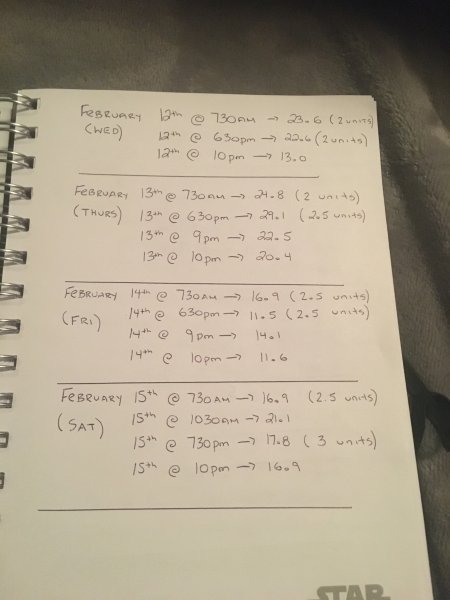 FEBRUARY 12th @ 730AM → 23.6 (2 units)
(WED) 12th @ 630pm → 22.6 (2 units)
12th @ 10pm → 13.0
FEBRUARY 13th @ 730AM → 24.8 (2 units)
(THURS) 13th @ 630pm → 29.1 (2.5 units)
13th @ 9pm → 22.5
13th @ 10pm → 20.4
FEBRUARY 14th @ 730AM → 16.9 (2.5 units)
(FRI) 14th @ 630pm → 11.5 (2.5 units)
14th @ 9pm → 14.1
14th @ 10pm → 11.6
FEBRUARY 15th @ 730AM → 16.9 (2.5 units)
(SAT) 15th @ 1030AM → 21.1
15th @ 730pm → 17.8 (3 units)
15th @ 10pm → 16.9
STAR